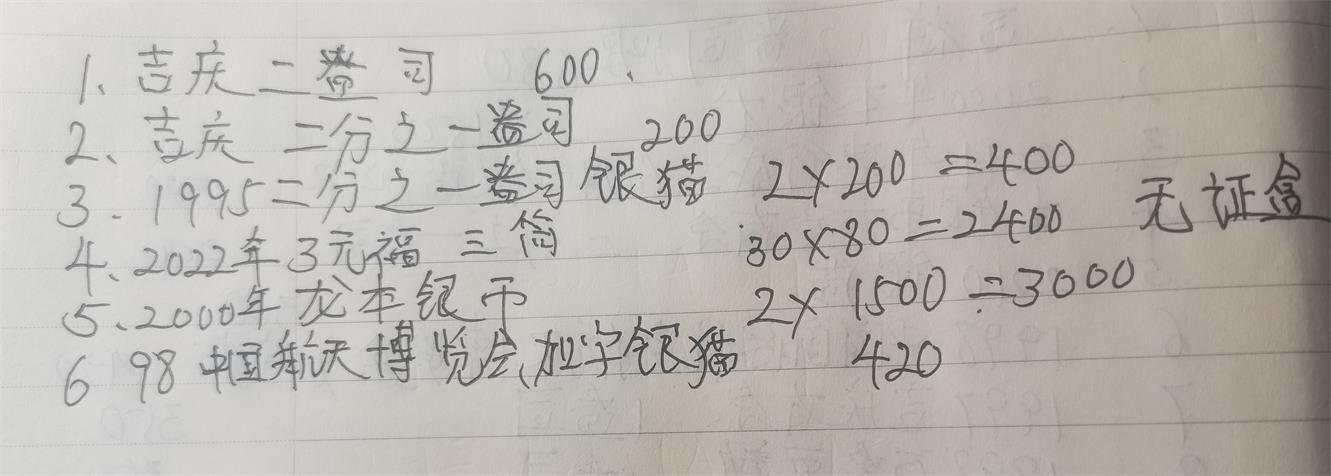 1、吉庆二盎司 600.
2、吉庆 二分之一盎司 200
3、1995二分之一盎司银猫 2×200=400 无证盒
4、2022年3元福 三筒 30×80=2400
5、2000年龙本银币 2×1500=3000
6 98中国航天博览会,加字银猫 420